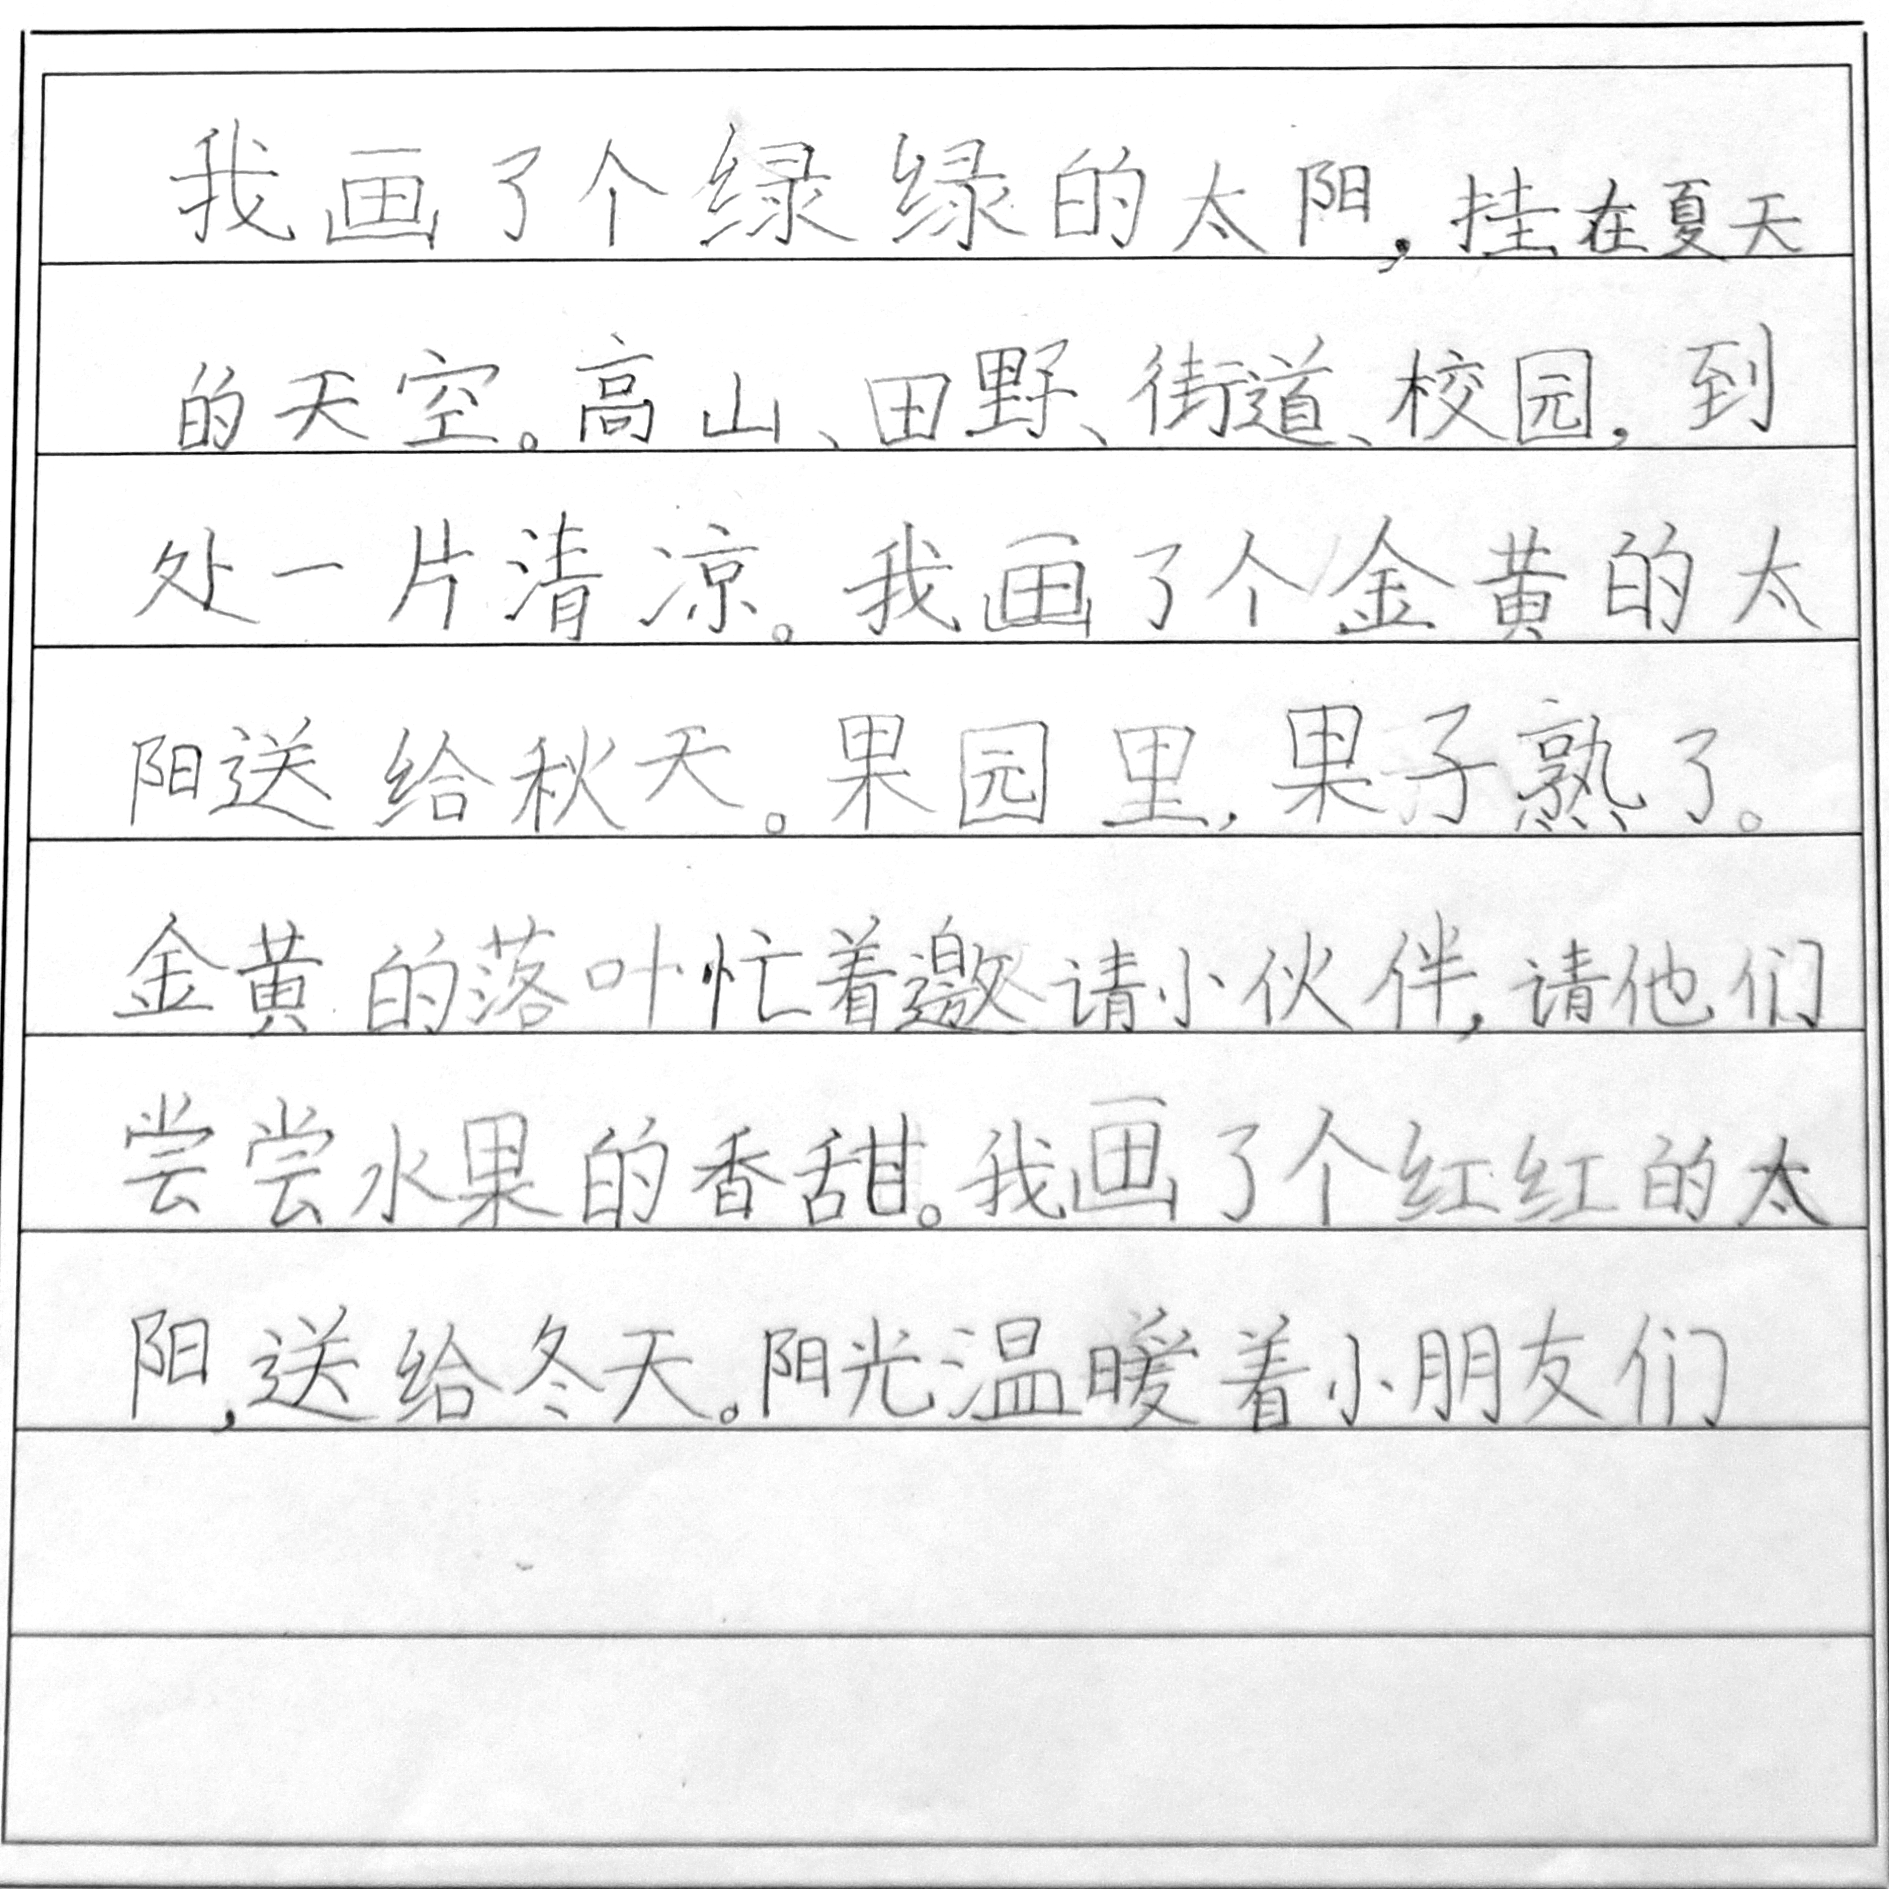 我画了个绿绿的太阳，挂在夏天
的天空。高山、田野、街道、校园，到
处一片清凉。我画了个金黄的太
阳送给秋天。果园里，果子熟了。
金黄的落叶忙着邀请小伙伴，请他们
尝尝水果的香甜。我画了个红红的太
阳，送给冬天。阳光温暖着小朋友们